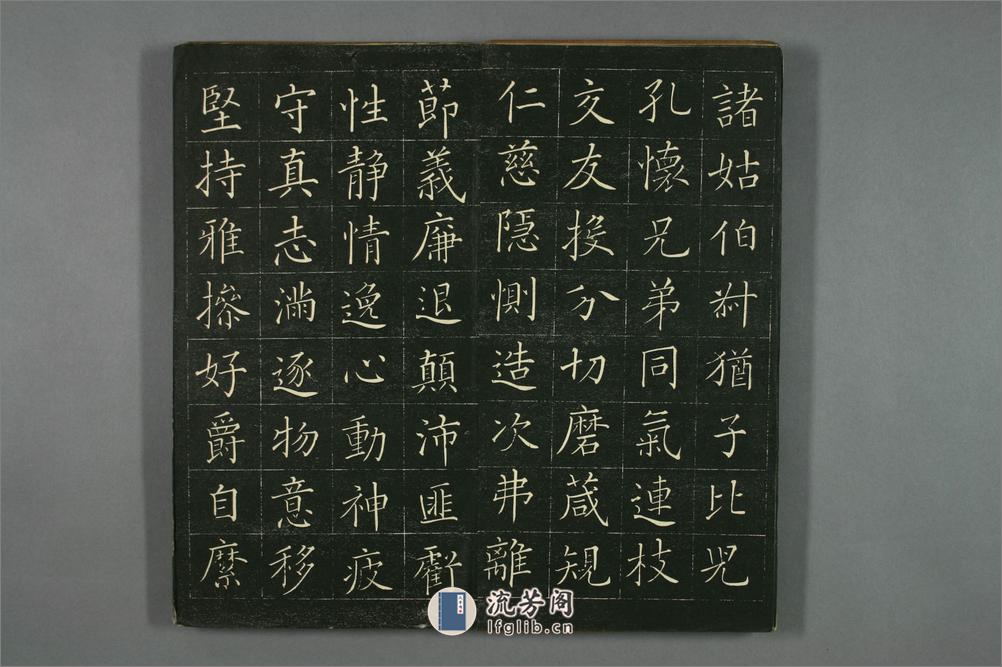 諸姑伯叔猶子比児
孔懷兄弟同氣連枝
交友投分切磨箴規
仁慈隱惻造次弗離
節義廉退顛沛匪虧
性静情逸心動神疲
守真志滿逐物意移
堅持雅操好爵自縻
流芳阁
lfglib.cn